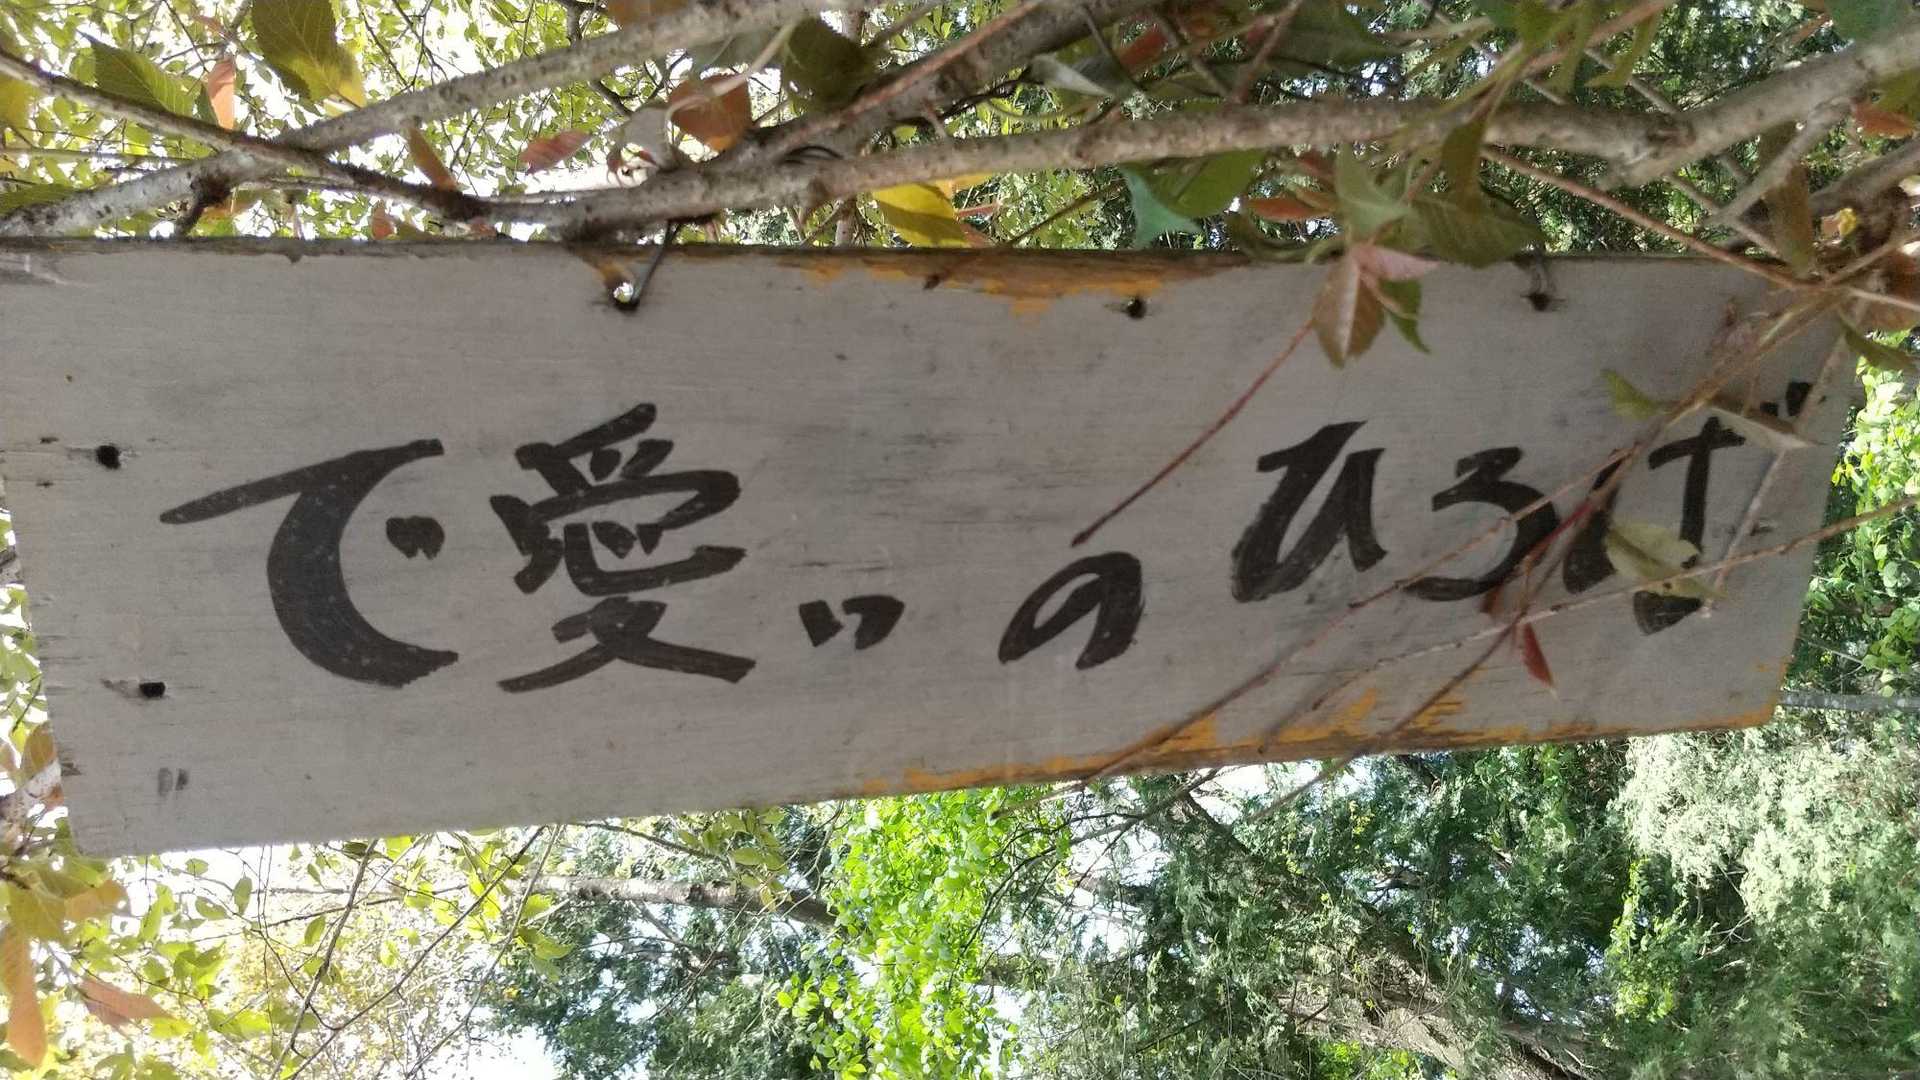 で愛いのひろば